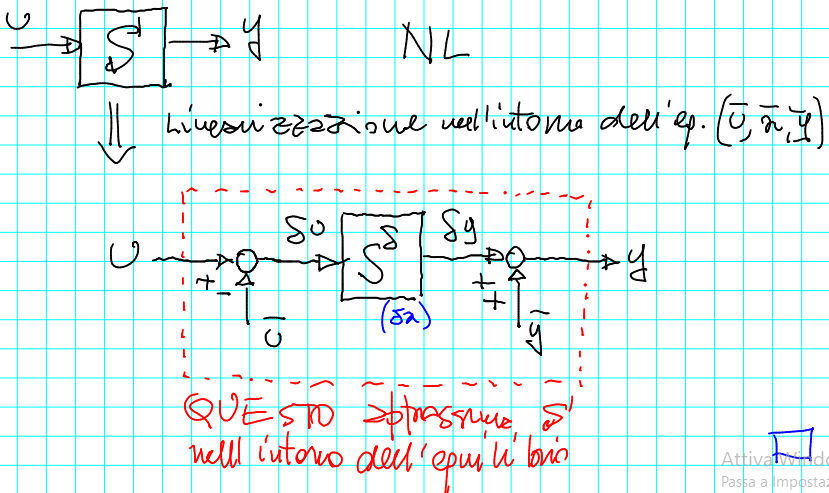 u S y NL
Linearizzazione nell'intorno dell'eq. (ū, x̄, ȳ)
u δu S^δ δy y
+ - + +
ū (δx) ȳ
QUESTO approssima S
nell'intorno dell'equilibrio
Attiva Windo
Passa a Impostaz